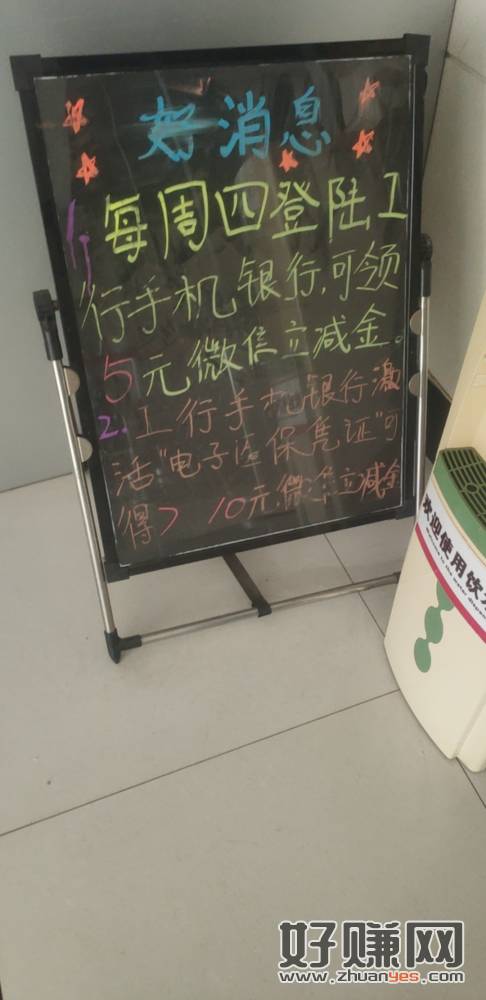 好消息
1、每周四登陆工
行手机银行,可领
5元微信立减金。
2.工行手机银行激
活"电子医保凭证"可
得> 10元微信立减金
欢迎使用饮
好赚网
www.zhuanyes.com